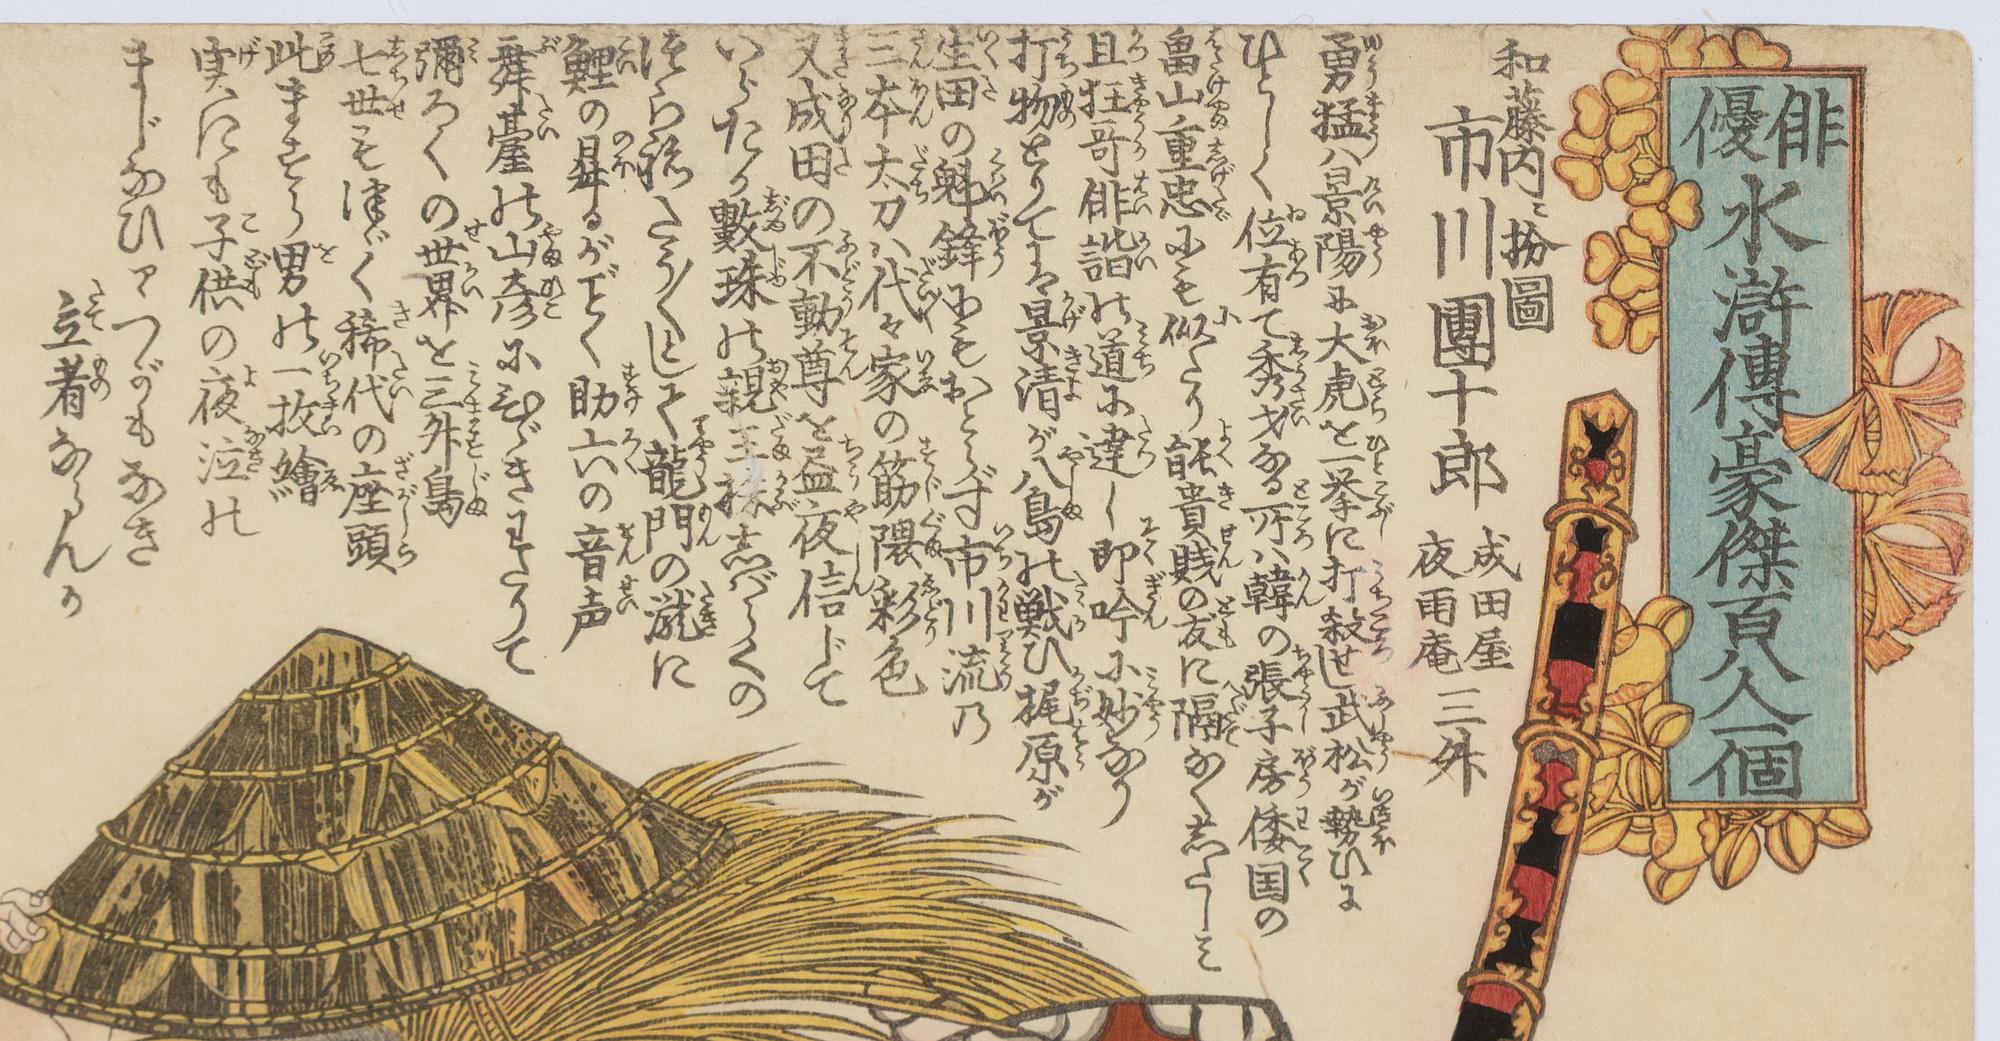 俳優水滸傳豪傑百八人一個
和藤内ニ扮圖
市川團十郎
成田屋
夜雨庵三舛
勇猛八景陽に大虎を一拳に打殺せし武松が勢ひに
ひとしく位有て秀才なる所ハ韓の張子房倭国の
畠山重忠にも似たり能貴賎の友に隔なくしたしミ
且狂哥俳諧の道に達し即吟に妙なり
打物とりてハ景清が八島の戦ひ梶原が
生田の魁鋒にもおとらず市川流乃
三本太刀ハ代々家の筋隈彩色
又成田の不動尊を昼夜信じて
いらたか數珠の親玉株志バらくの
つらねさう〳〵として龍門の瀧に
鯉の昇るがごとく助六の音声
舞臺の山彦にひゞきわたりて
彌ろくの世界を三舛島
七世も津ゞく稀代の座頭
此ますら男の一枚繪
実にも子供の夜泣の
まじなひァつがもなき
立者ならんか